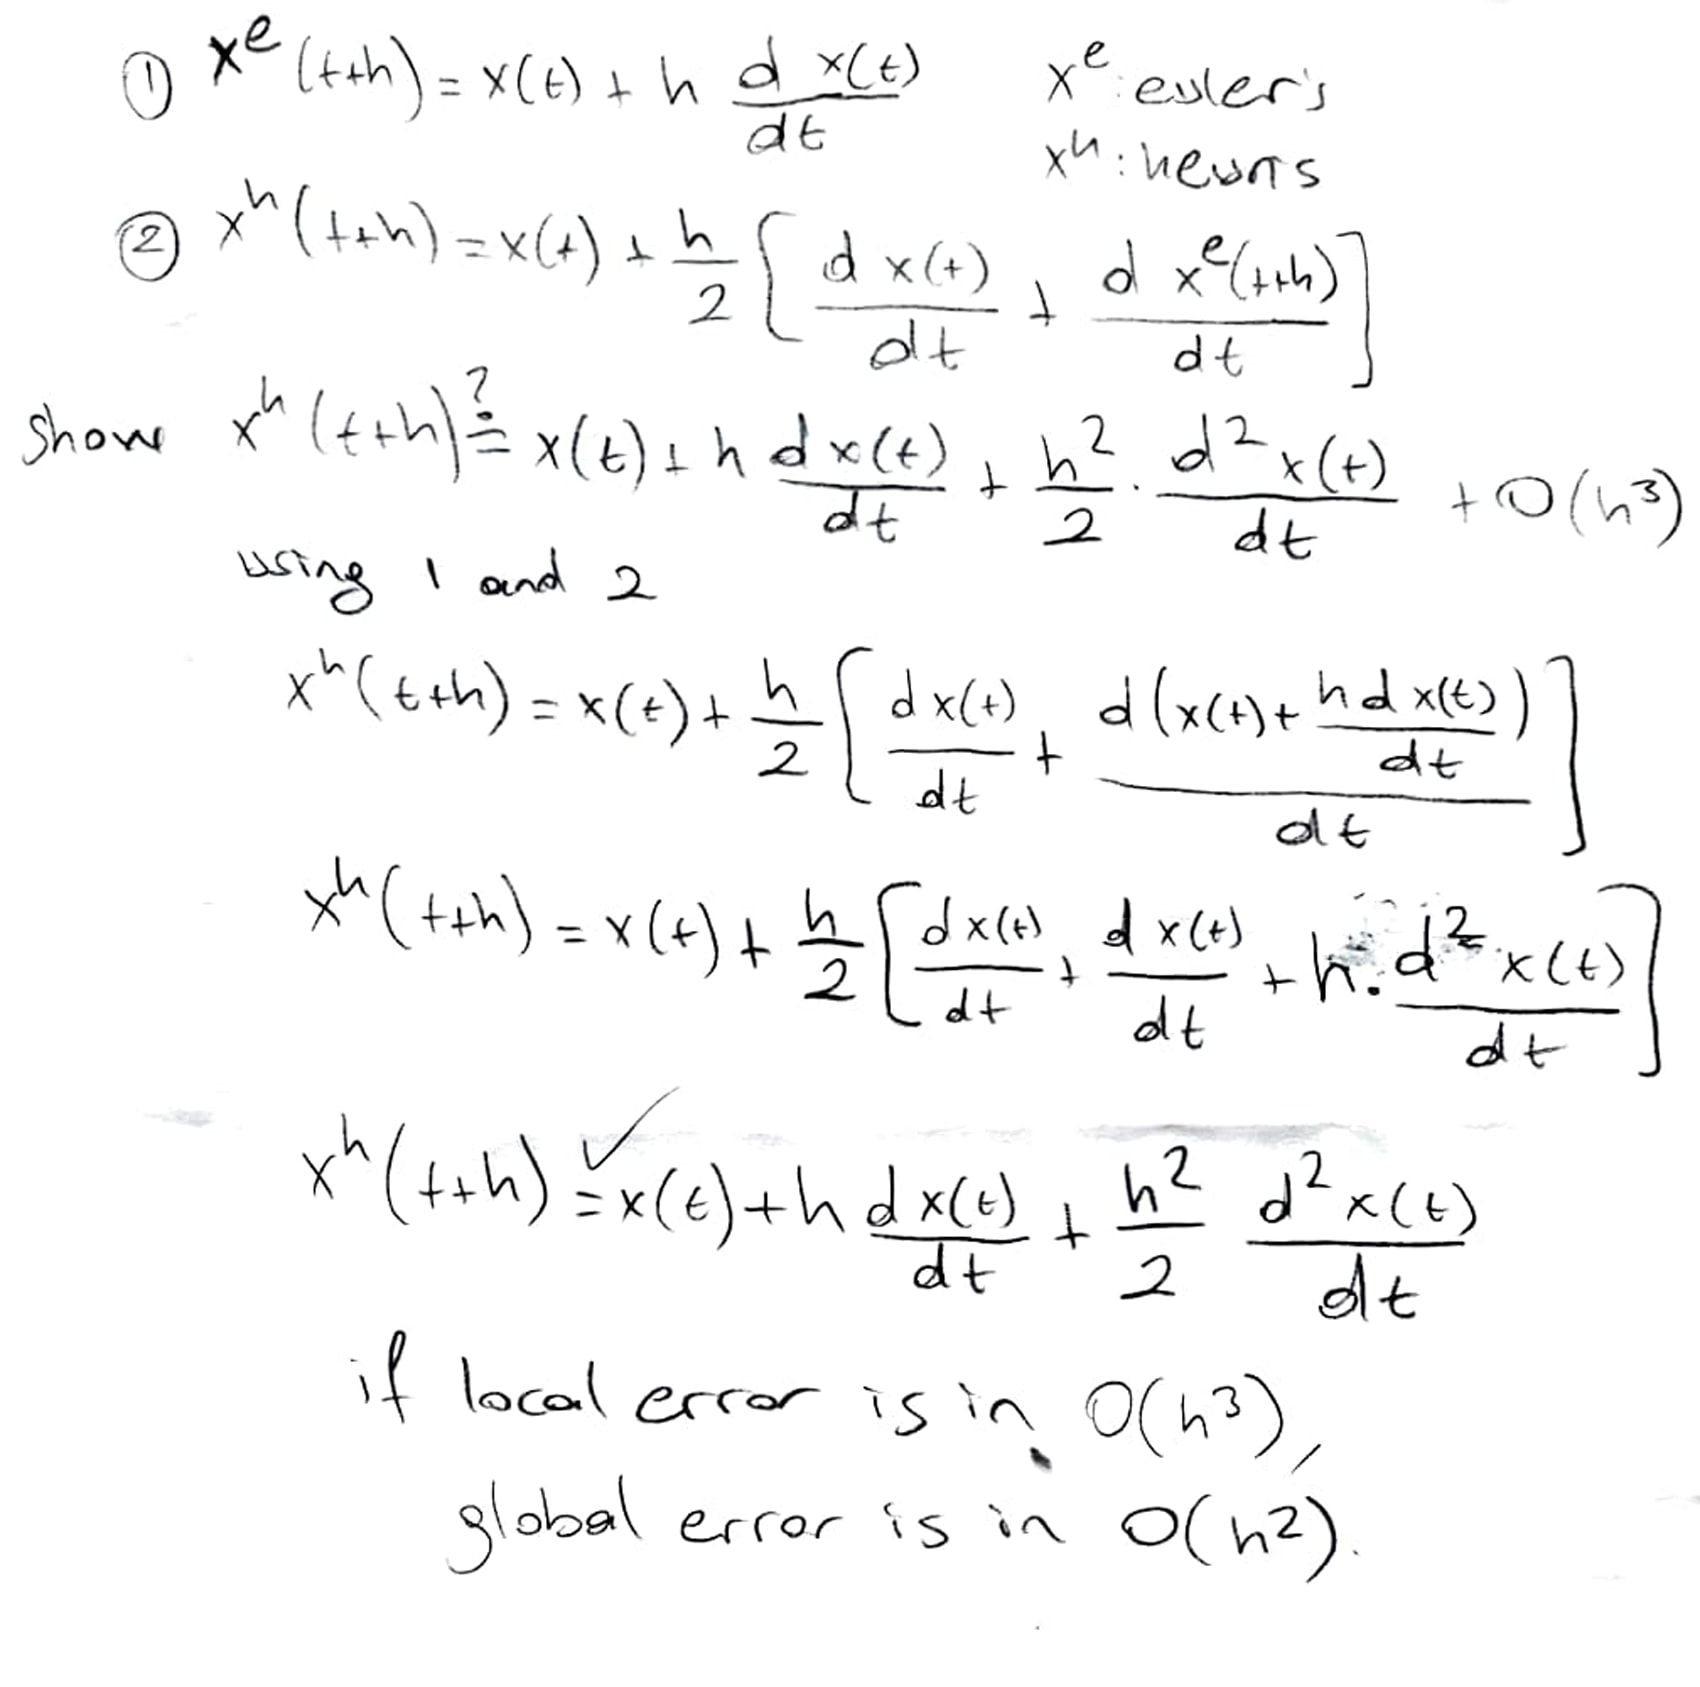 ① xᵉ(t+h) = x(t) + h dx(t)/dt    xᵉ: euler's
xʰ: heun's
② xʰ(t+h) = x(t) + h/2 [ dx(t)/dt + d xᵉ(t+h)/dt ]
Show xʰ(t+h) ≟ x(t) + h dx(t)/dt + h²/2 · d²x(t)/dt + O(h³)
using 1 and 2
xʰ(t+h) = x(t) + h/2 [ dx(t)/dt + d(x(t) + h dx(t)/dt)/dt ]
xʰ(t+h) = x(t) + h/2 [ dx(t)/dt + dx(t)/dt + h · d²x(t)/dt ]
xʰ(t+h) =✓ x(t) + h dx(t)/dt + h²/2 d²x(t)/dt
if local error is in O(h³),
global error is in O(h²).